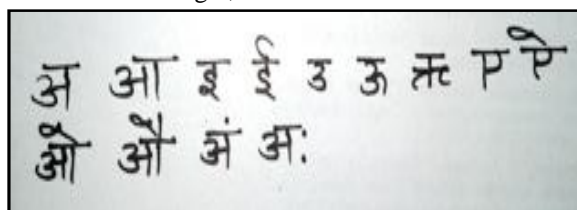 अ आ इ ई उ ऊ ऋ ए ऐ
ओ औ अं अः